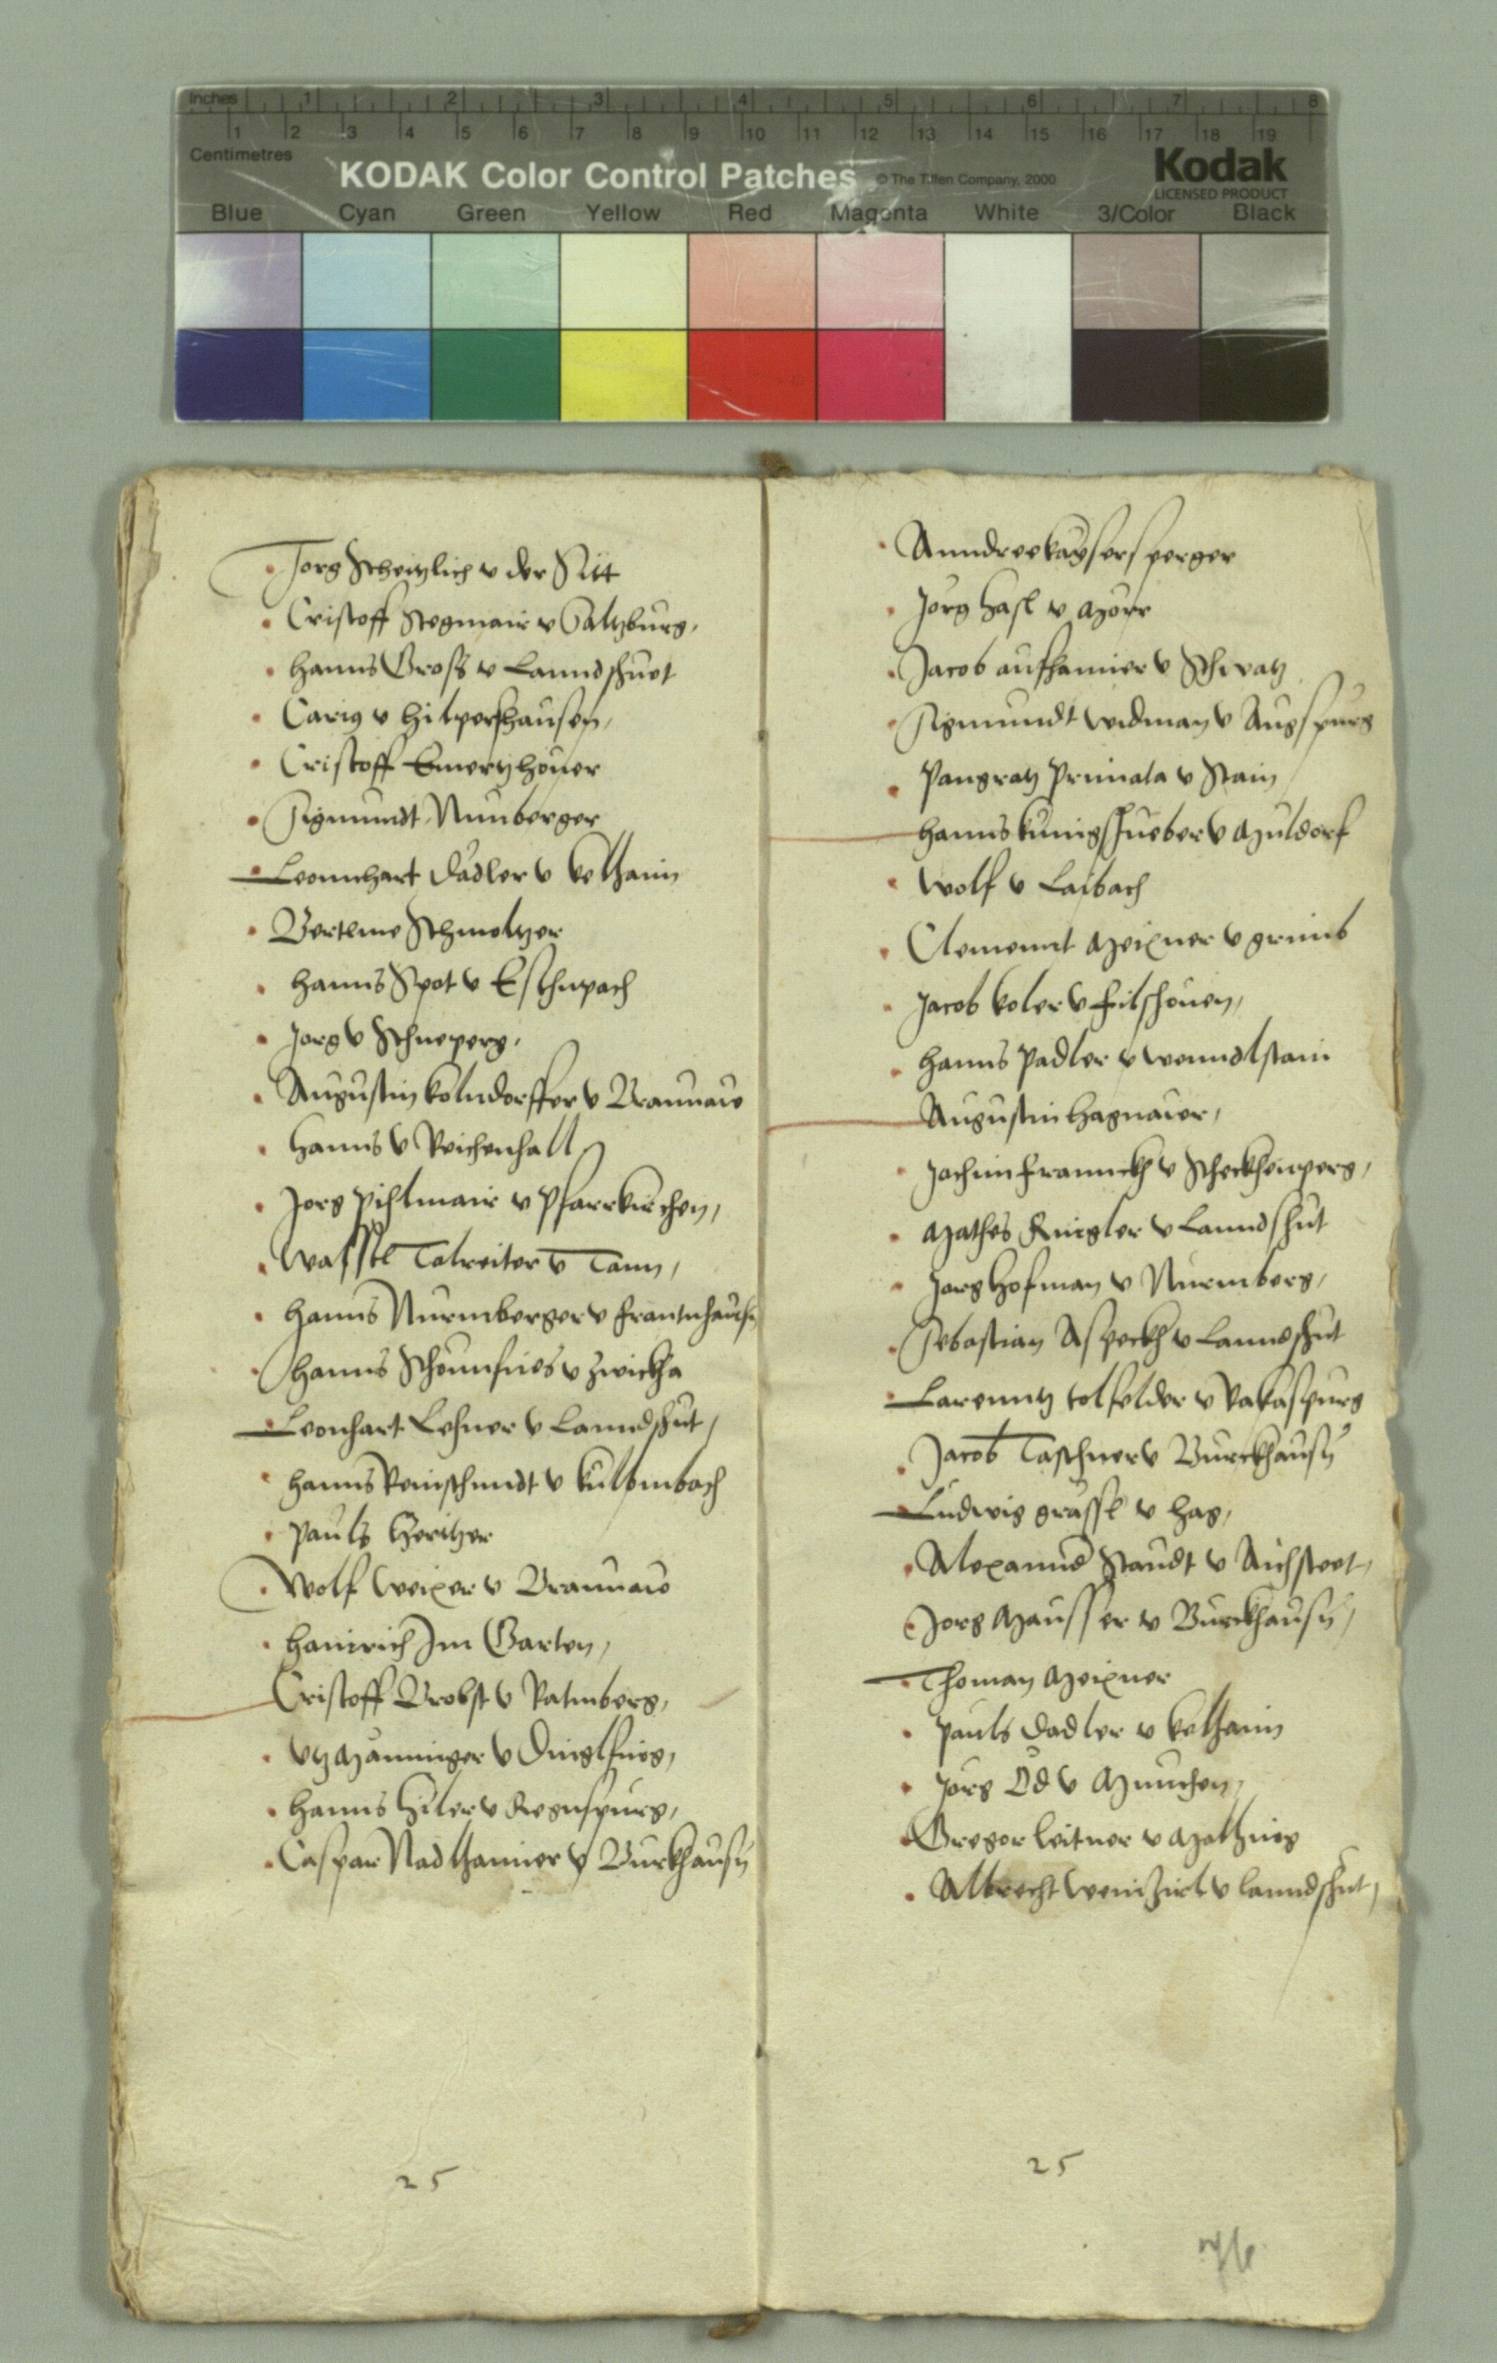 Inches 1 2 3 4 5 6 7 8
1 2 3 4 5 6 7 8 9 10 11 12 13 14 15 16 17 18 19
Centimetres
KODAK Color Control Patches © The Tiffen Company, 2000
Kodak
LICENSED PRODUCT
Blue Cyan Green Yellow Red Magenta White 3/Color Black
Jorg Scheitzlich v der Sitt
Cristoff Stegmair v Saltzburg,
Hanns Gross v Lanndshuet
Carig v Hilpershausen,
Cristoff Emertzhouer
Sigmundt Nunberger
Leonnhart Dadler v Kelhaim
Bertlme Schmeltzer
Hanns Spot v Eschnpach
Jorg v Schneperg,
Augustin Kolndorffer v Braunaw
Hanns v Reichenhall
Jorg Pihlmair v Pfarrkirchen,
Wasstl Talreiter v Tann,
Hanns Nurmberger v Frantnhausn
Hanns v Zwickha
Leonhart Lehner v Lanndshut,
Hanns Reinschmidt v Kulbmbach
Pauls Heritzer
Wolf Weixer v Braunaw
Hainrich Im Garten,
Cristoff Brobst v Ratmberg,
Utz Manninger v Dinglfing,
Hanns Hiler v Regnspurg,
Caspar Nadlhamer v Burkhausn
25
Anndree Kaysersperger
Jorg Hasl v Morr
Jacob aufhamer v Schwatz
Sigmundt Widman v Augspurg
Pangratz Primata v Stain
Hanns Kunigshueber v Muldorf
Wolf v Laibach
Clemennt Meixner v
Jacob Koler v Filshouen,
Hanns Padler v Wenndlstain
Augustin Hagnawer,
Jachim Frannckh v Scheckhenperg,
Mathes Ringler v Lanndshut
Jorg Hofman v Nurmberg,
Sebastian Aspeckh v Lanndshut
Larenntz tolfelder v Rakaspurg
Jacob Taschner v Burckhausn
Ludwig grassl v Hag,
Alexannd Staudt v Aichsteet,
Jorg Mausser v Burckhausn,
Thoman Meixner
Pauls Dadler v Kelhaim
Jorg Öd v Munchen,
Gregor Leitner v Mathing
Albrecht Weinzirl v Lanndshut,
25